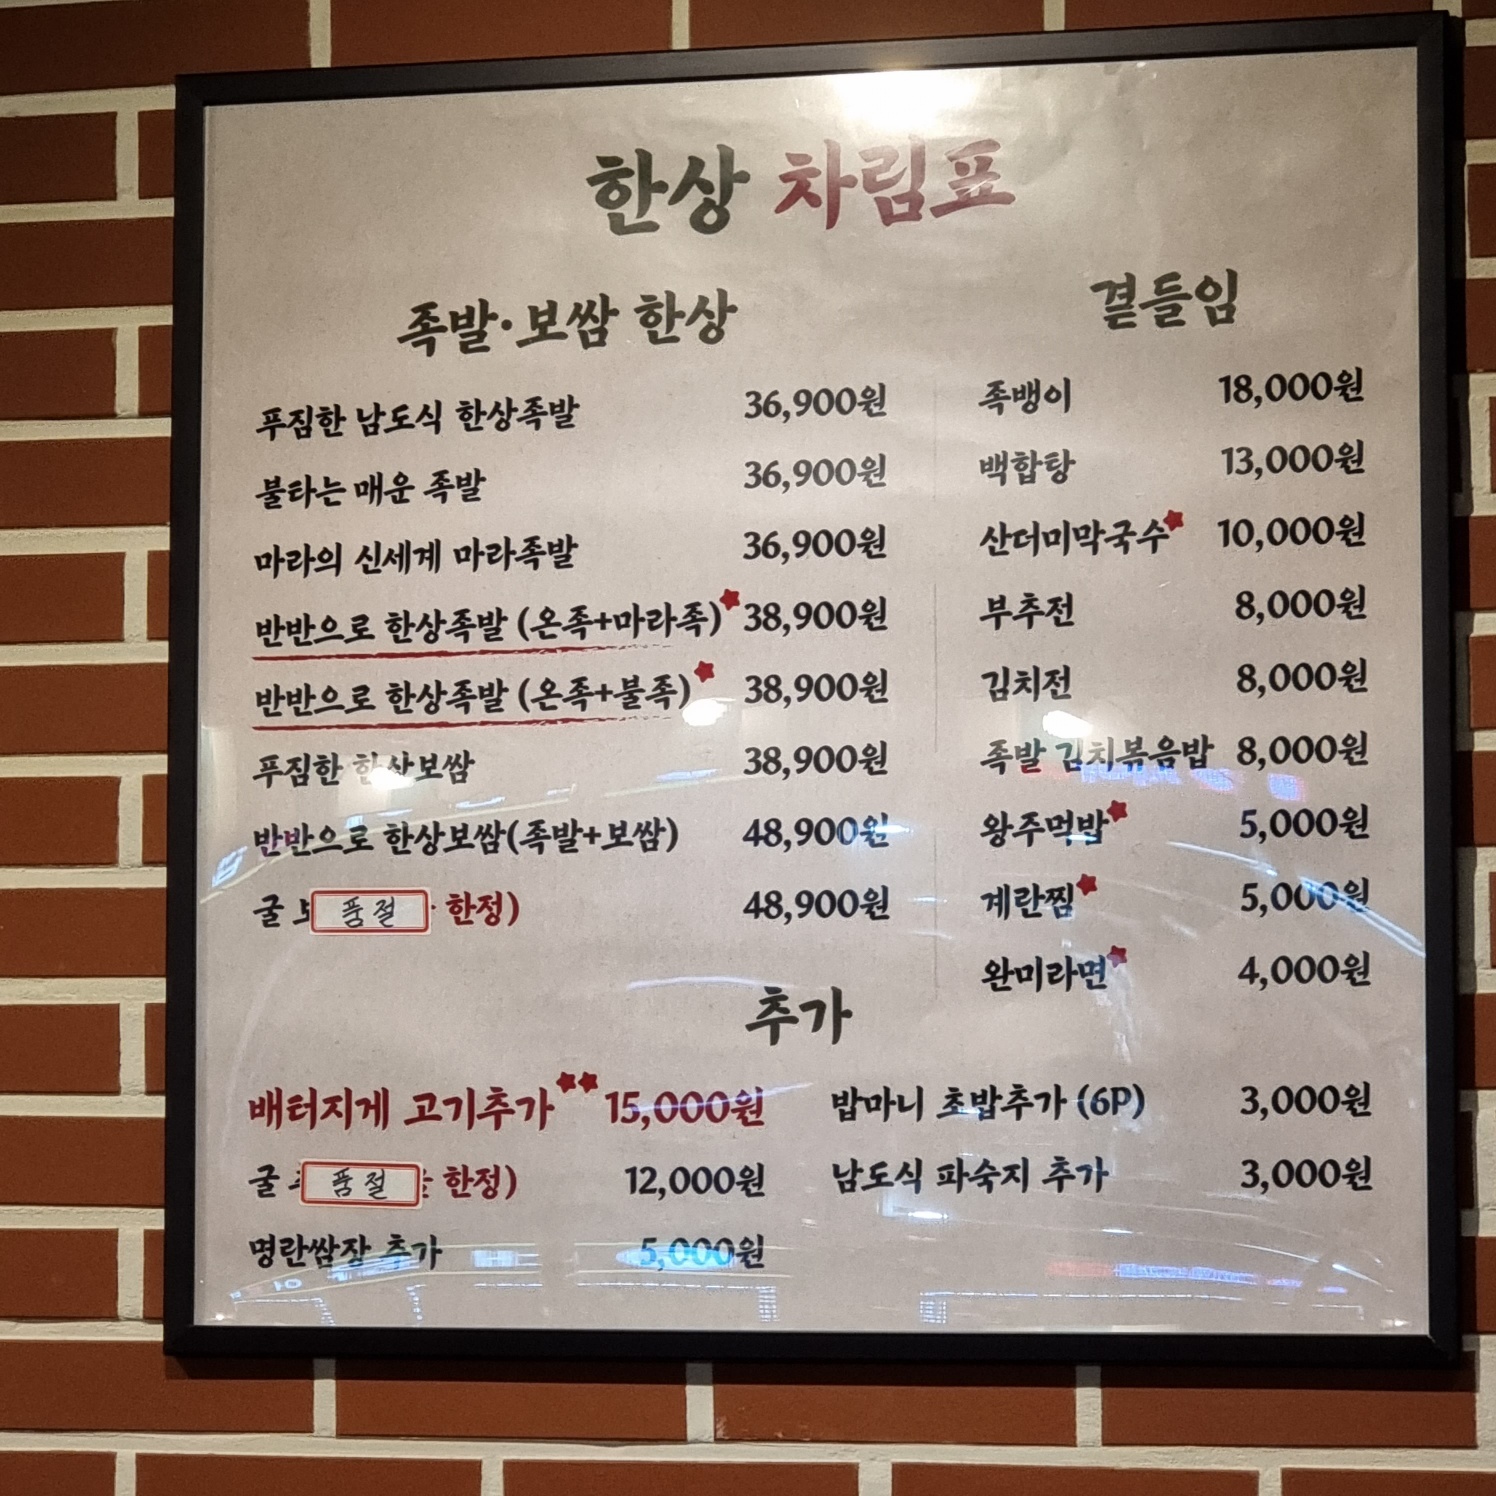 한상 차림표
족발·보쌈 한상
푸짐한 남도식 한상족발 36,900원
불타는 매운 족발 36,900원
마라의 신세계 마라족발 36,900원
반반으로 한상족발 (온족+마라족) 38,900원
반반으로 한상족발 (온족+불족) 38,900원
푸짐한 한상보쌈 38,900원
반반으로 한상보쌈(족발+보쌈) 48,900원
굴 품절 한정) 48,900원
곁들임
족뱅이 18,000원
백합탕 13,000원
산더미막국수 10,000원
부추전 8,000원
김치전 8,000원
족발 김치볶음밥 8,000원
왕주먹밥 5,000원
계란찜 5,000원
완미라면 4,000원
추가
배터지게 고기추가 15,000원
굴 품절 한정) 12,000원
명란쌈장 추가 5,000원
밥마니 초밥추가 (6P) 3,000원
남도식 파숙지 추가 3,000원